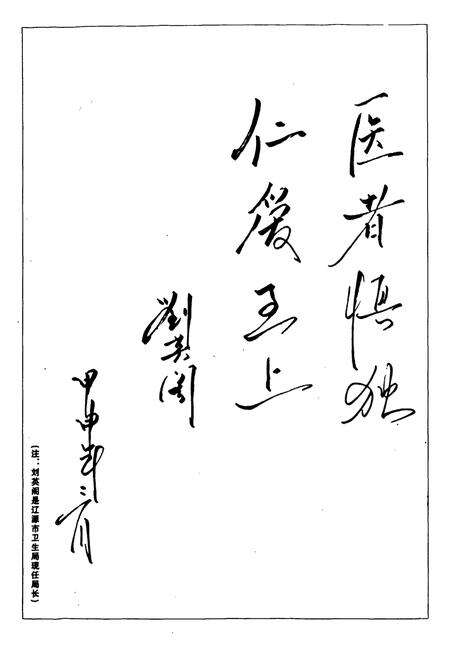 医者慎独
仁爱至上
劉英阁
甲申年二月
（注：刘英阁是辽源市卫生局现任局长）